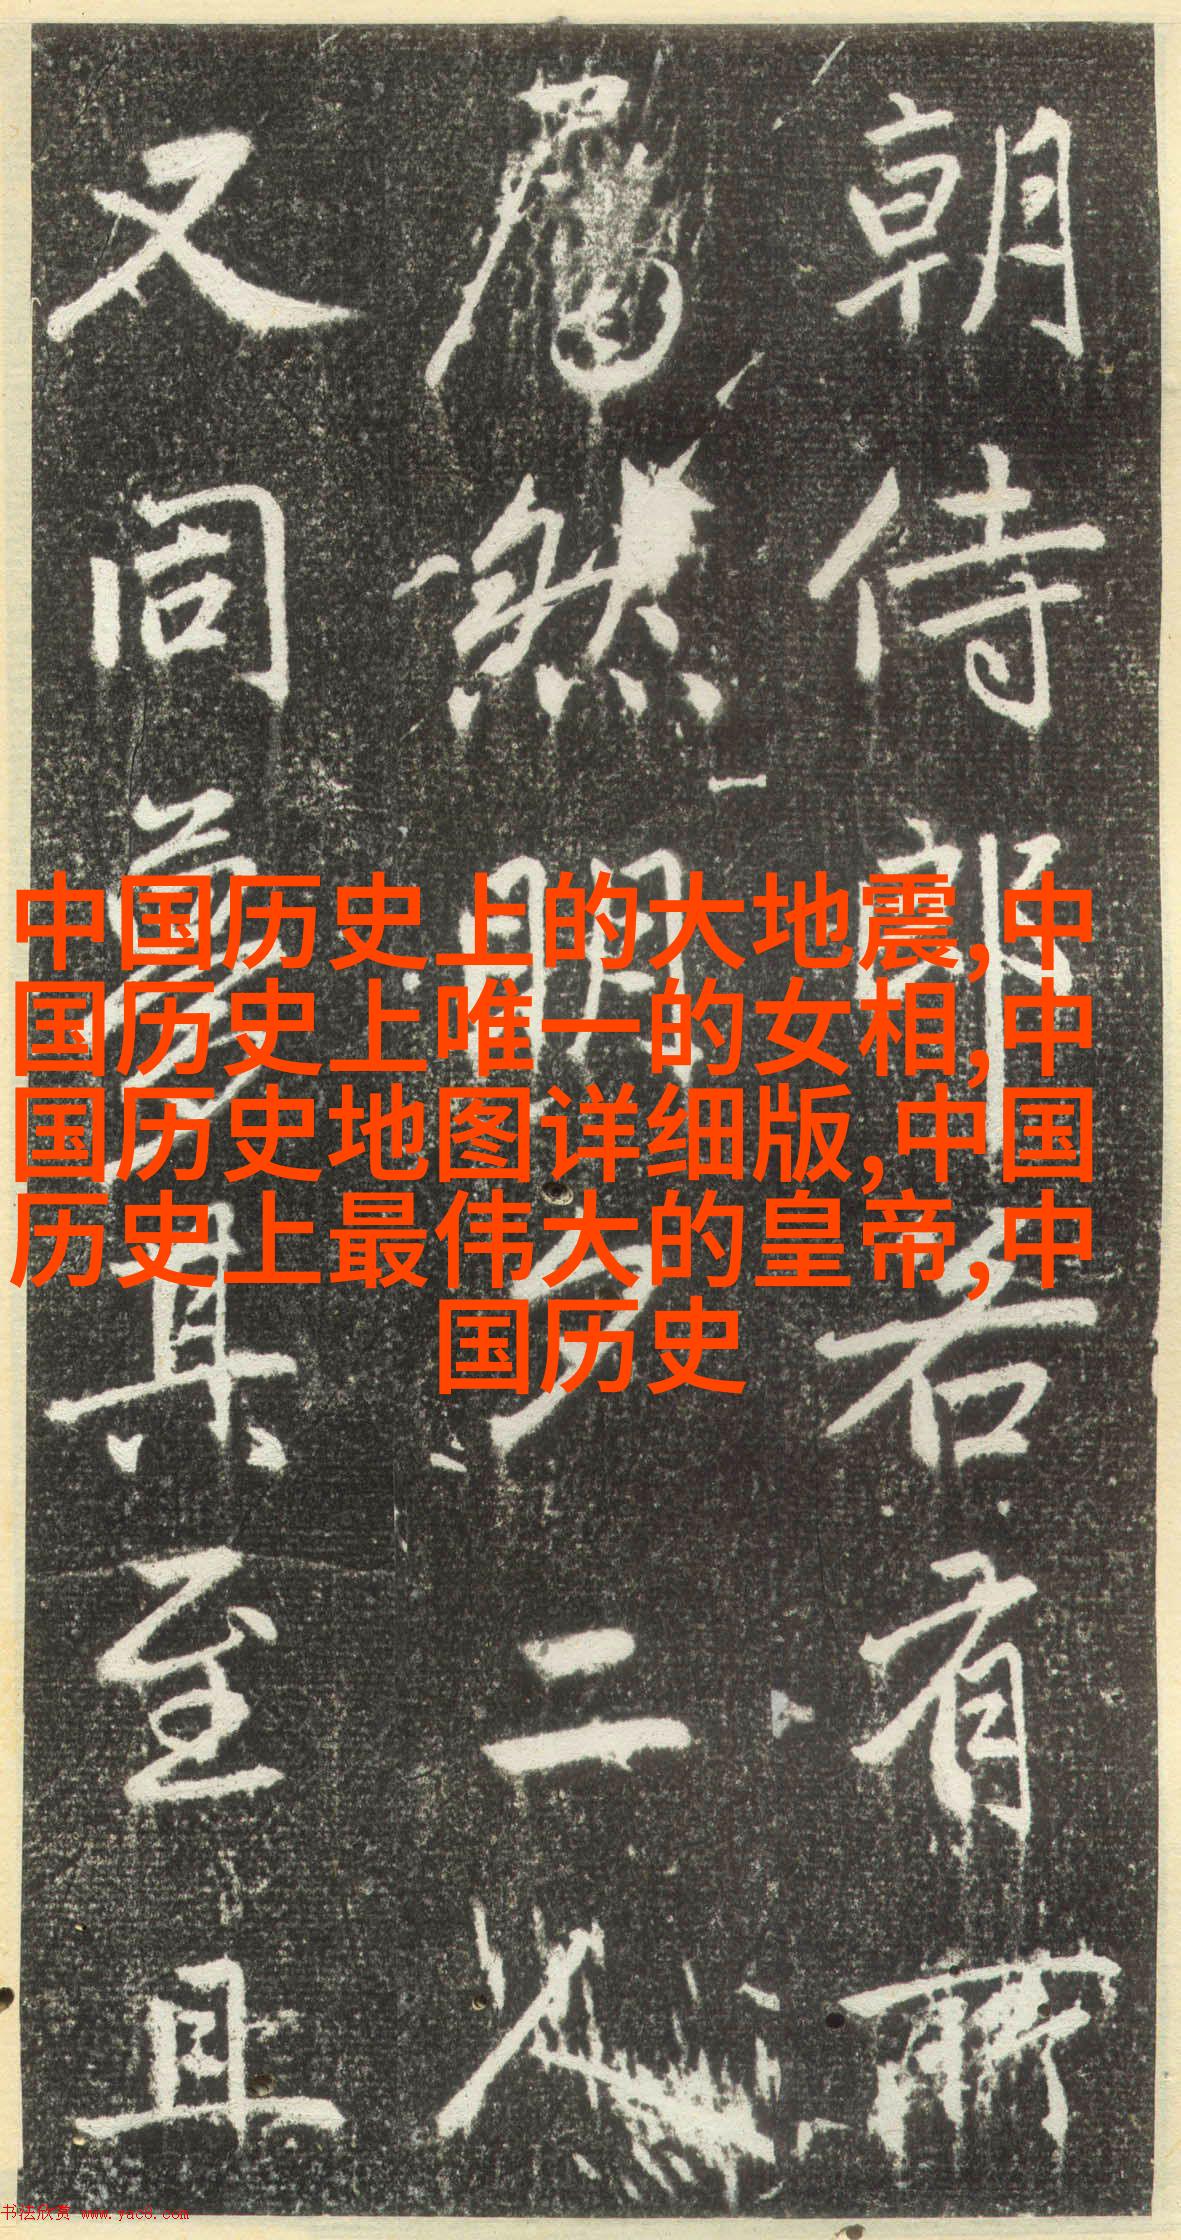 朝侍郎若有所
然明夕二人
又同夢其至且
中国历史上的大地震,中
国历史上唯一的女相,中
国历史地图详细版,中国
历史上最伟大的皇帝,中
国历史
书法欣赏 www.yac8.com